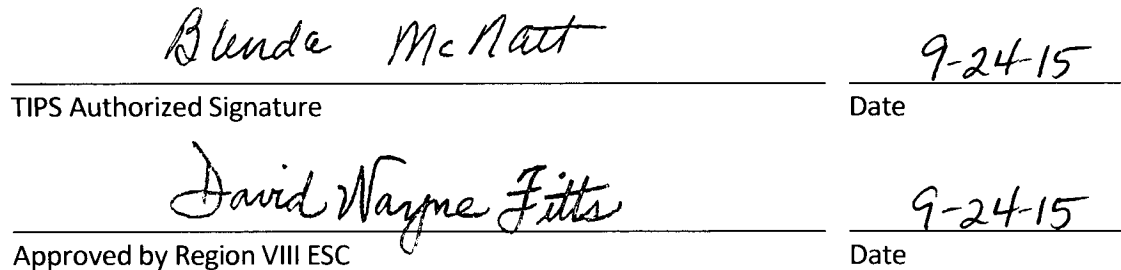 Blenda McNatt 9-24-15
TIPS Authorized Signature Date
David Wayne Fitts 9-24-15
Approved by Region VIII ESC Date